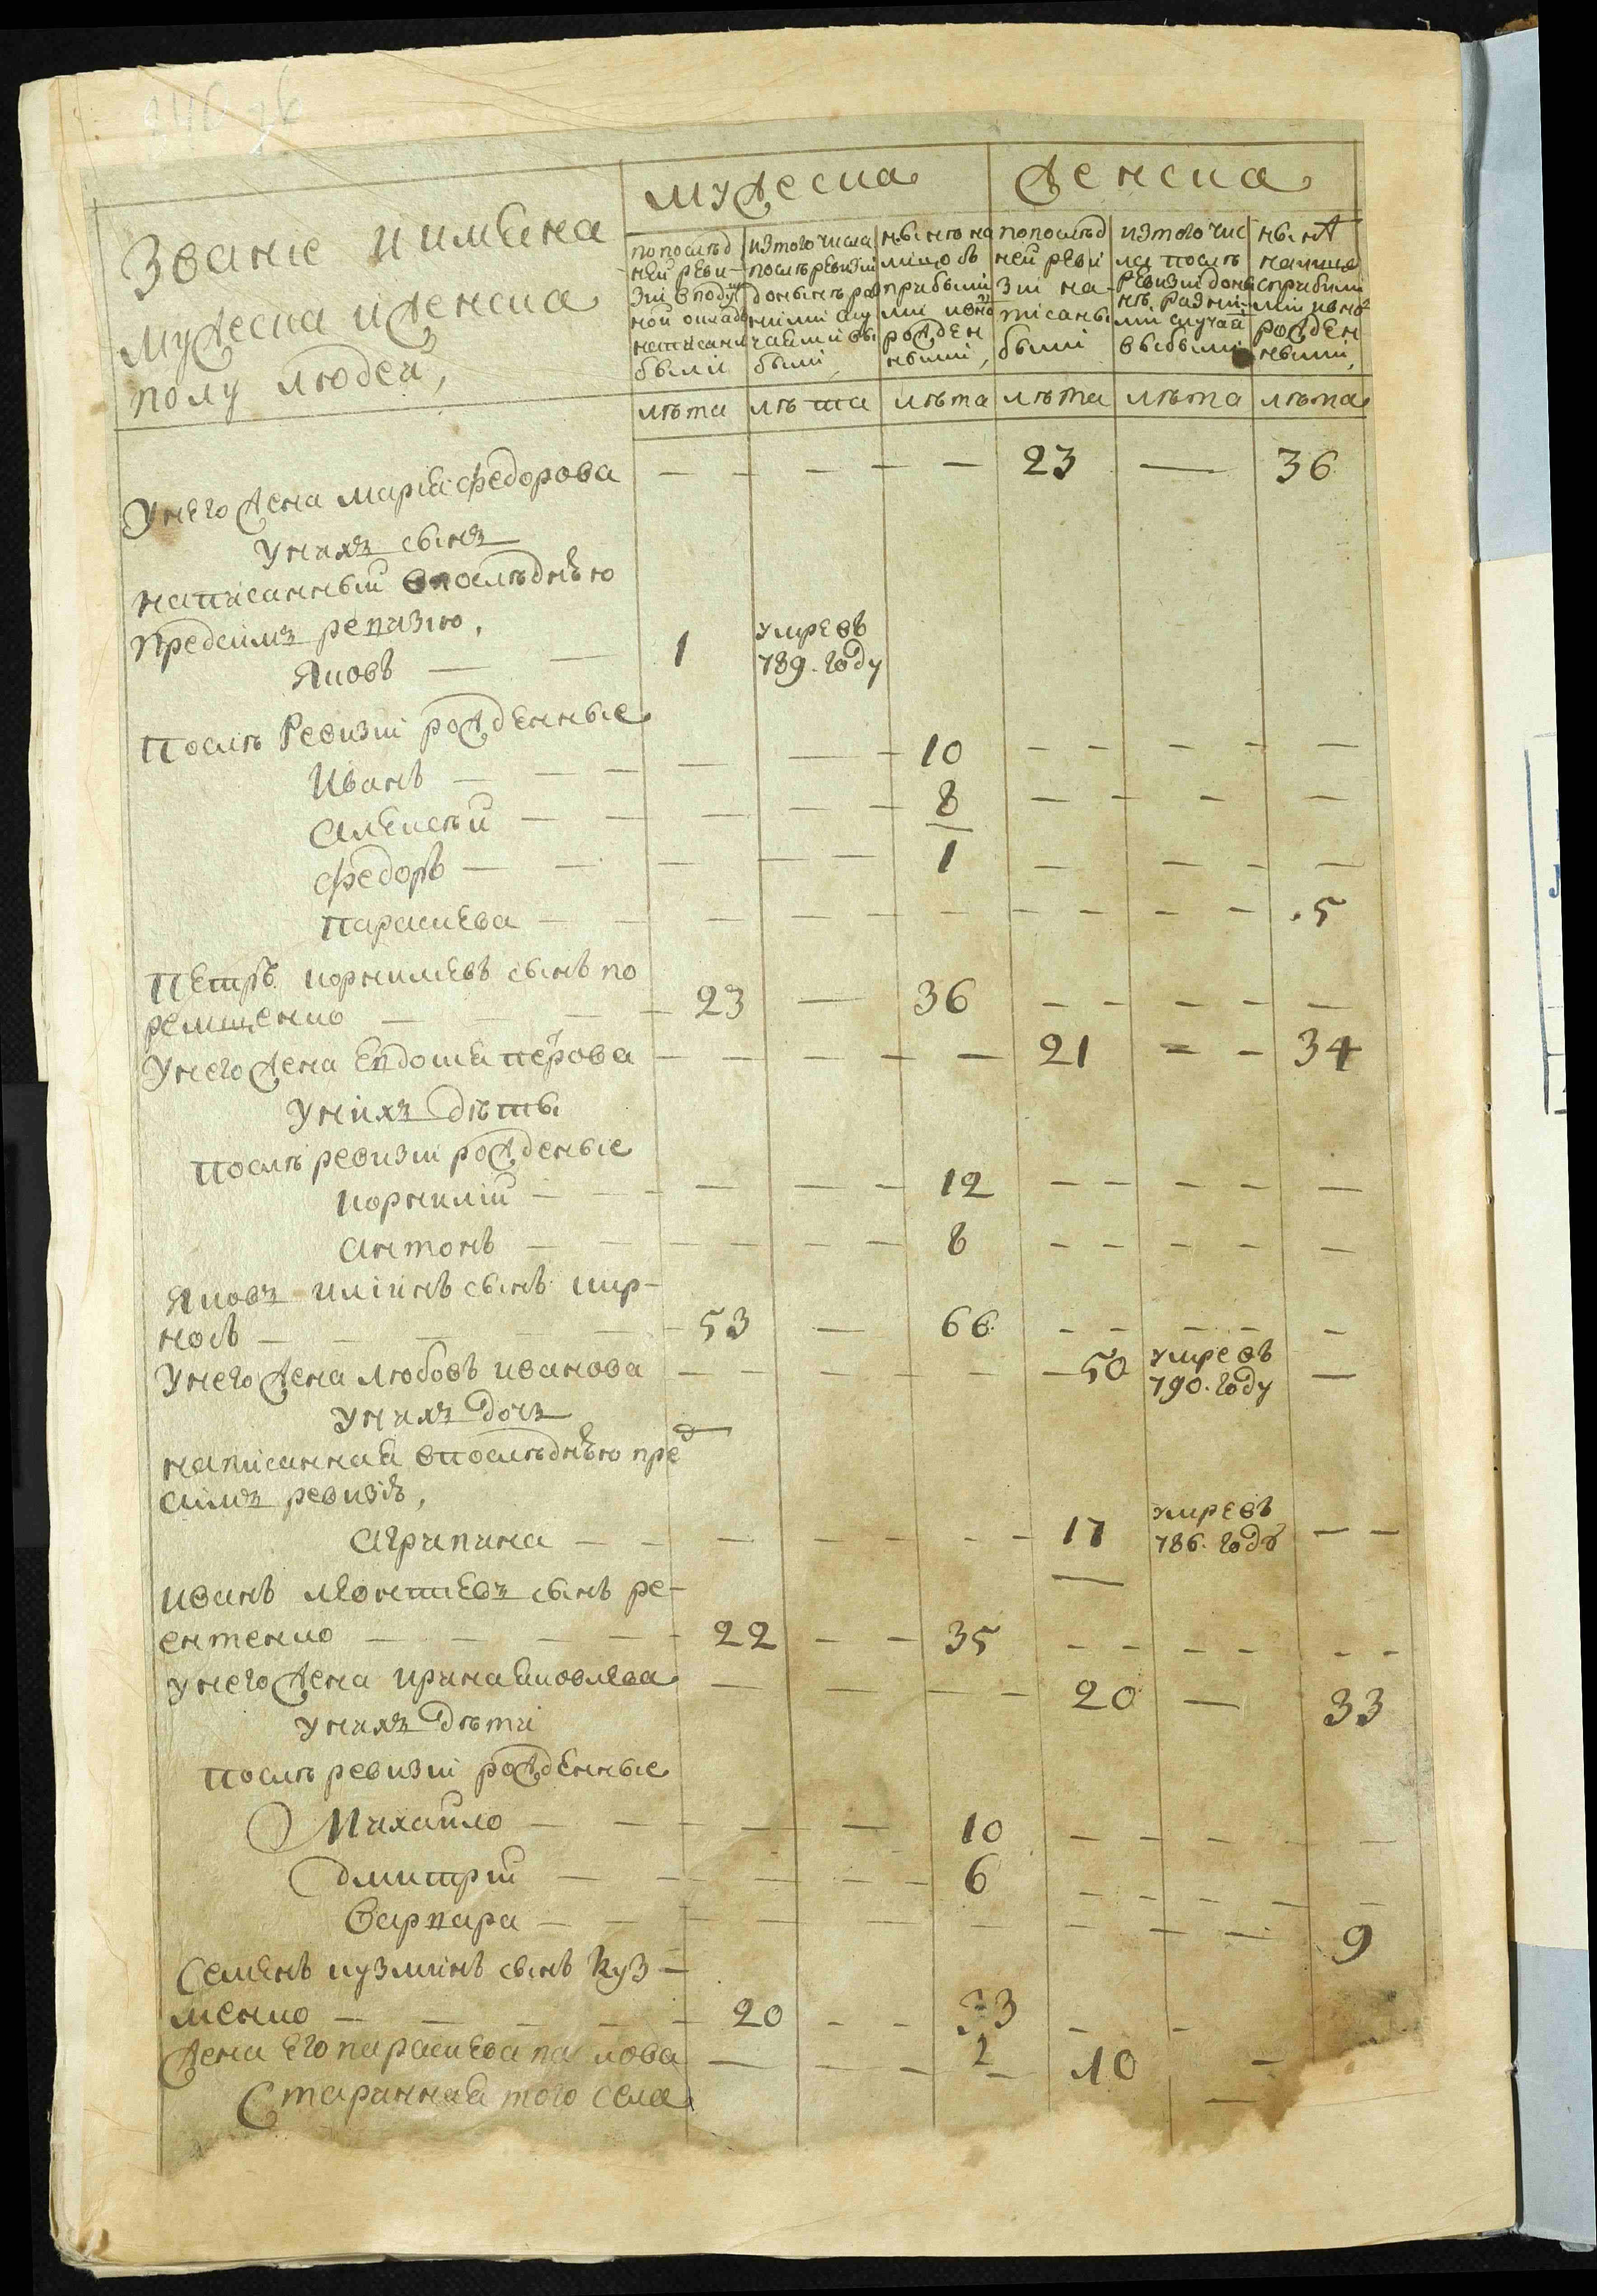 Званіе и имяна
мужеска и женска
полу людей,
мужеска
женска
по послѣд
ней реви-
зіи в поду
ной окладъ
написаны
были
из того числа
послѣ ревизіи
донынѣ раз
ними слу
чаями вы
были,
нынѣ на
лицо съ
прибыли
ми и внов
рожден
ными,
по послѣд
ней реви
зіи на-
писаны
были
из того чис
ла послѣ
ревизіи доны
нѣ разни-
ми случаи
выбыли
нынѣ
налицо
с прибыли
ми и внов
рожден
ными,
лѣта лѣта лѣта лѣта лѣта лѣта
У него жена Марія Федорова — — — — — 23 — 36
У них сынъ
написанный в последнюю
пред сим ревизію,
Яковъ — — 1 умре въ 789. году
После ревизіи рожденные
Иванъ — — — — — — 10 — — — — —
Алексѣй — — — — — 8 — — — —
Федоръ — — — — — 1 — — — —
Параскева — — — — — — — — — — 5
Петръ Корнилиевъ сынъ по
ремщенко — — — — 23 — 36 — — — — —
У него жена Евдокия Петрова — — — — — 21 — — 34
У них дѣты
После ревизіи рожденые
Корнилій — — — — — — 12 — — — — —
Антонъ — — — — — — 8 — — — — —
Яков Иліинъ сынъ кир-
носъ — — — — — 53 — 66 — — — — —
У него жена Любовъ Иванова — — — — — — 50 умре въ 790. году —
У них доч
написанная в последнюю пред
сим ревизіѣ,
Агрипина — — — — — — — 17 умре въ 786. году — —
Иванъ Леонтиев сынъ ре-
ентенко — — — — — 22 — — 35 — — — — — —
У него жена Ирина Яковлева — — — — 20 — 33
У них дѣти
После ревизіи рожденные
Михайло — — — — — 10 — — — — —
Дмитрій — — — — — 6 — — — — —
Варвара — — — — — — — — — 9
Семенъ Кузминъ сынъ Куз-
менко — — — — — 20 — — 33 — —
Жена его Параскева Павлова — — — 2 — 10 —
Старинная того села